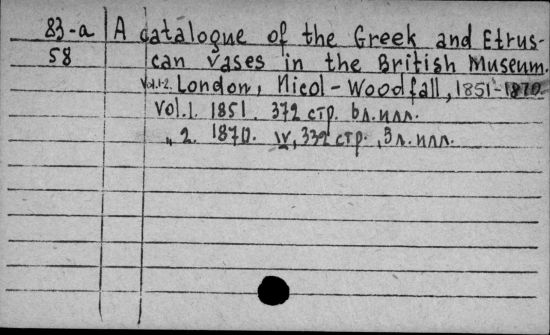 83-a A catalogue of the Greek and Etrus-
58 can vases in the British Museum.
Vol.1-2. London, Nicol-Woodfall, 1851-1870.
Vol.1. 1851. 372 стр. 6 л. илл.
„ 2. 1870. IV, 339 стр., 3 л. илл.